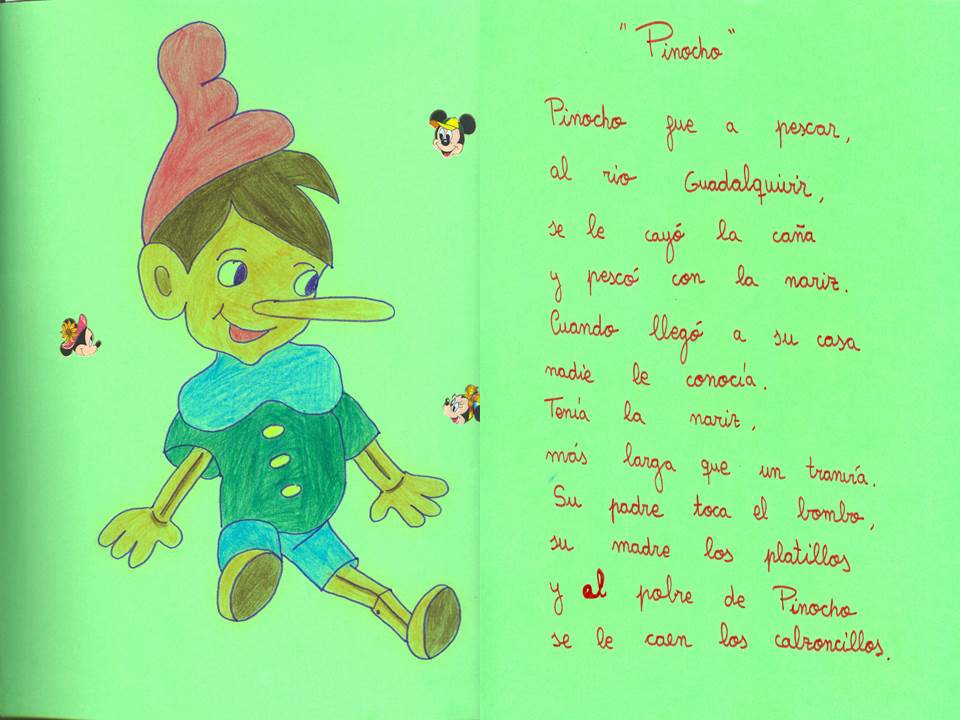 "Pinocho"
Pinocho fue a pescar,
al río Guadalquivir,
se le cayó la caña
y pescó con la nariz.
Cuando llegó a su casa
nadie le conocía.
Tenía la nariz,
más larga que un tranvía.
Su padre toca el bombo,
su madre los platillos
y al pobre de Pinocho
se le caen los calzoncillos.